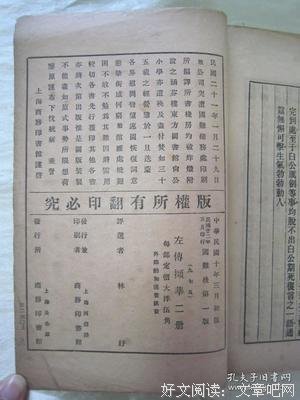 民國二十一年一月二十九日
敝公司突遭國難總務處印刷
所編譯所書棧房均被炸燬附
設之涵芬樓東方圖書館尚公
小學亦遭殃及盡付焚如三十
五載之經營隳於一旦迭蒙
各界慰問督望速圖恢復詞意
懇摯銜感何窮敝館雖處境艱
困不敢不勉爲其難因將需用
較切各書先行覆印其他各書
亦將次第出版惟是圖版裝製
不能盡如原式事勢所限想荷
鑒原謹布下忱統祈 垂詧
上海商務印書館謹啓
版權所有翻印必究
中華民國十年三月初版
民國二十二年五月印行國難後第一版
(九七五)
左傳擷華二册
每部定價大洋伍角
外埠酌加運費匯費
評選者 林紓
發行兼印刷者 上海河南路 商務印書館
發行所 上海及各埠 商務印書館
完到處至于白公諷劍等事均脫不出白公期死復言之一語通
篇無懈可擊生氣勃勃動人
好文阅读:文章吧网
孔夫子旧书网